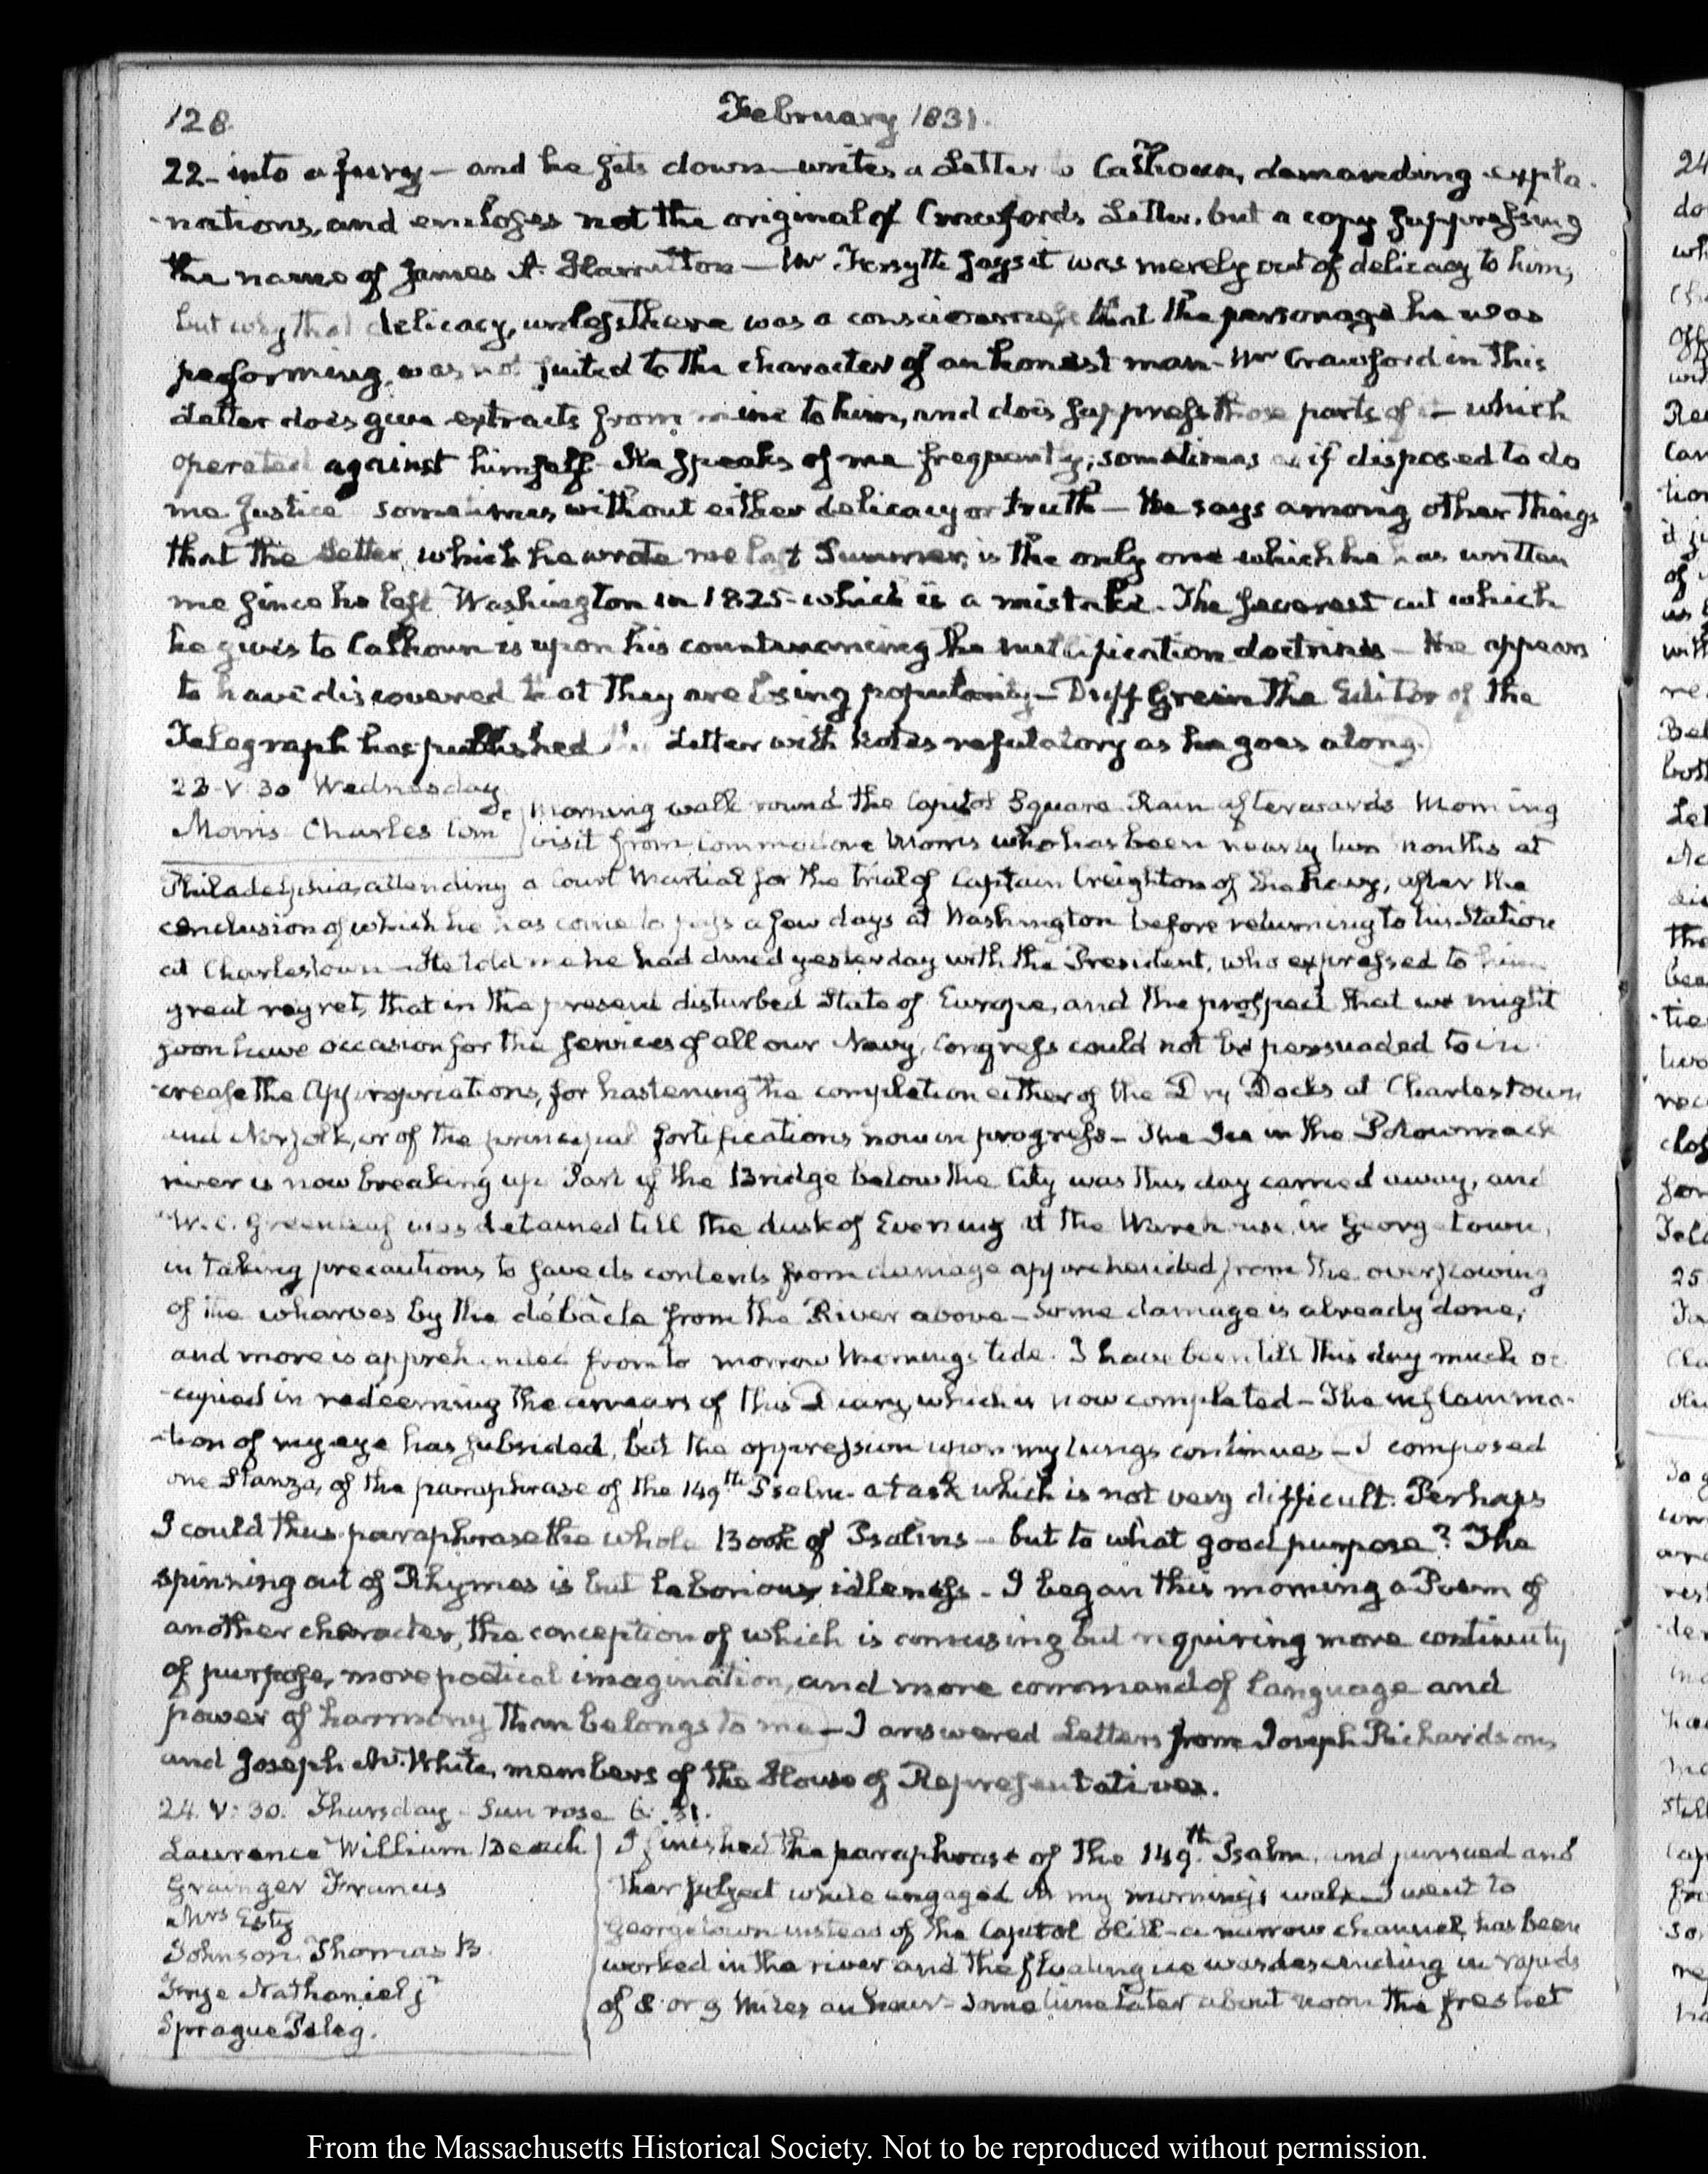 128.
February 1831.
22- into a fury — and he sits down — writes a Letter to Calhoun, demanding expla-
-nations, and encloses not the original of Crawford's Letter, but a copy suppressing
the name of James A. Hamilton — Mr Forsyth says it was merely out of delicacy to him,
but why that delicacy, unless there was a consciousness that the personage he was
performing, was not suited to the character of an honest man - Mr Crawford in this
Letter does give extracts from mine to him, and does suppress those parts of it — which
operated against himself. He speaks of me frequently; sometimes as if disposed to do
me Justice sometimes without either delicacy or truth — He says among other things
that the Letter, which he wrote me last Summer, is the only one which he has written
me since he left Washington in 1825 - which is a mistake. The severest cut which
he gives to Calhoun is upon his countenancing the nullification doctrines — He appears
to have discovered that they are losing popularity — Duff Green the Editor of the
Telegraph has published this Letter with Notes refutatory as he goes along.
23. V. 30 Wednesday.
Morris Charles Com
Morning walk round the Capitol Square. Rain afterwards Morning
visit from Commodore Morris who has been nearly two months at
Philadelphia, attending a Court Martial for the trial of Captain Creighton of the Navy, after the
conclusion of which he has come to pass a few days at Washington before returning to his Station
at Charlestown — He told me he had dined yesterday with the President, who expressed to him
great regret, that in the present disturbed State of Europe, and the prospect that we might
soon have occasion for the services of all our Navy, Congress could not be persuaded to in-
-crease the Appropriations, for hastening the completion either of the Dry Docks at Charlestown
and Norfolk, or of the principal fortifications now in progress — The Ice in the Potowmack
river is now breaking up. Part of the Bridge below the City was this day carried away, and
W. C. Greenleaf was detained till the dusk of Evening at the Warehouse in Georgetown,
in taking precautions to save its contents from damage apprehended from the overflowing
of the wharves by the débâcle from the River above — Some damage is already done,
and more is apprehended from to morrow Morning's tide. I have been till this day much oc-
-cupied in redeeming the arrears of this Diary, which is now completed — The inflamma-
-tion of my eye has subsided, but the oppression upon my lungs continues — I composed
one Stanza, of the paraphrase of the 149th Psalm. a task which is not very difficult. Perhaps
I could thus paraphrase the whole Book of Psalms — but to what good purpose? The
spinning out of Rhymes is but laborious idleness - I began this morning a Poem of
another character, the conception of which is amusing but requiring more continuity
of purpose, more poetical imagination, and more command of language and
power of harmony than belongs to me — I answered Letters from Joseph Richardson,
and Joseph M. White, members of the House of Representatives.
24. V: 30. Thursday - Sun rose 6: 31.
Lawrence William Beach
Grainger Francis
Mrs Esty
Johnson Thomas B.
Frye Nathaniel jr
Sprague Peleg.
I finished the paraphrase of the 149th Psalm, and pursued ano
ther subject while engaged in my morning's walk. I went to
Georgetown instead of the Capitol Hill - a narrow channel has been
worked in the river and the floating ice was descending in rapids
of 8 or 9 Miles an hour - Some time later about noon the freshet
From the Massachusetts Historical Society. Not to be reproduced without permission.